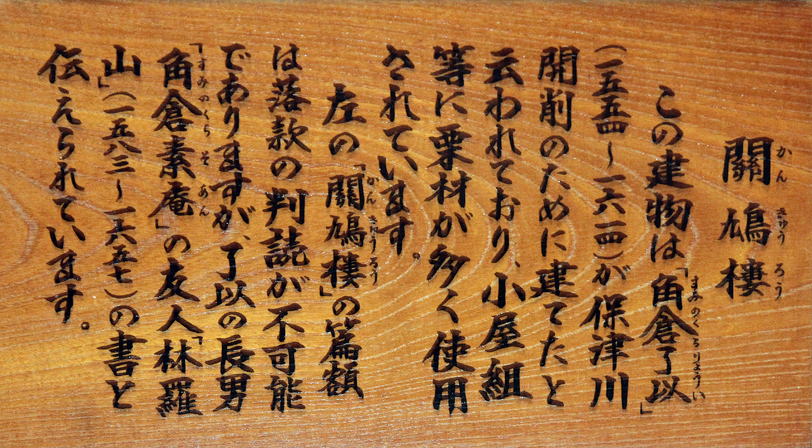 關鳩樓
かんきゅうろう
この建物は「角倉了以」
すみのくらりょうい
(一五五四～一六一四)が保津川
開削のために建てたと
云われており、小屋組
等に栗材が多く使用
されています。
左の「關鳩樓」の篇額
かんきゅうろう
は落款の判読が不可能
でありますが、了以の長男
「角倉素庵」の友人「林羅
すみのくらそあん
山」(一五八三～一六五七)の書と
伝えられています。